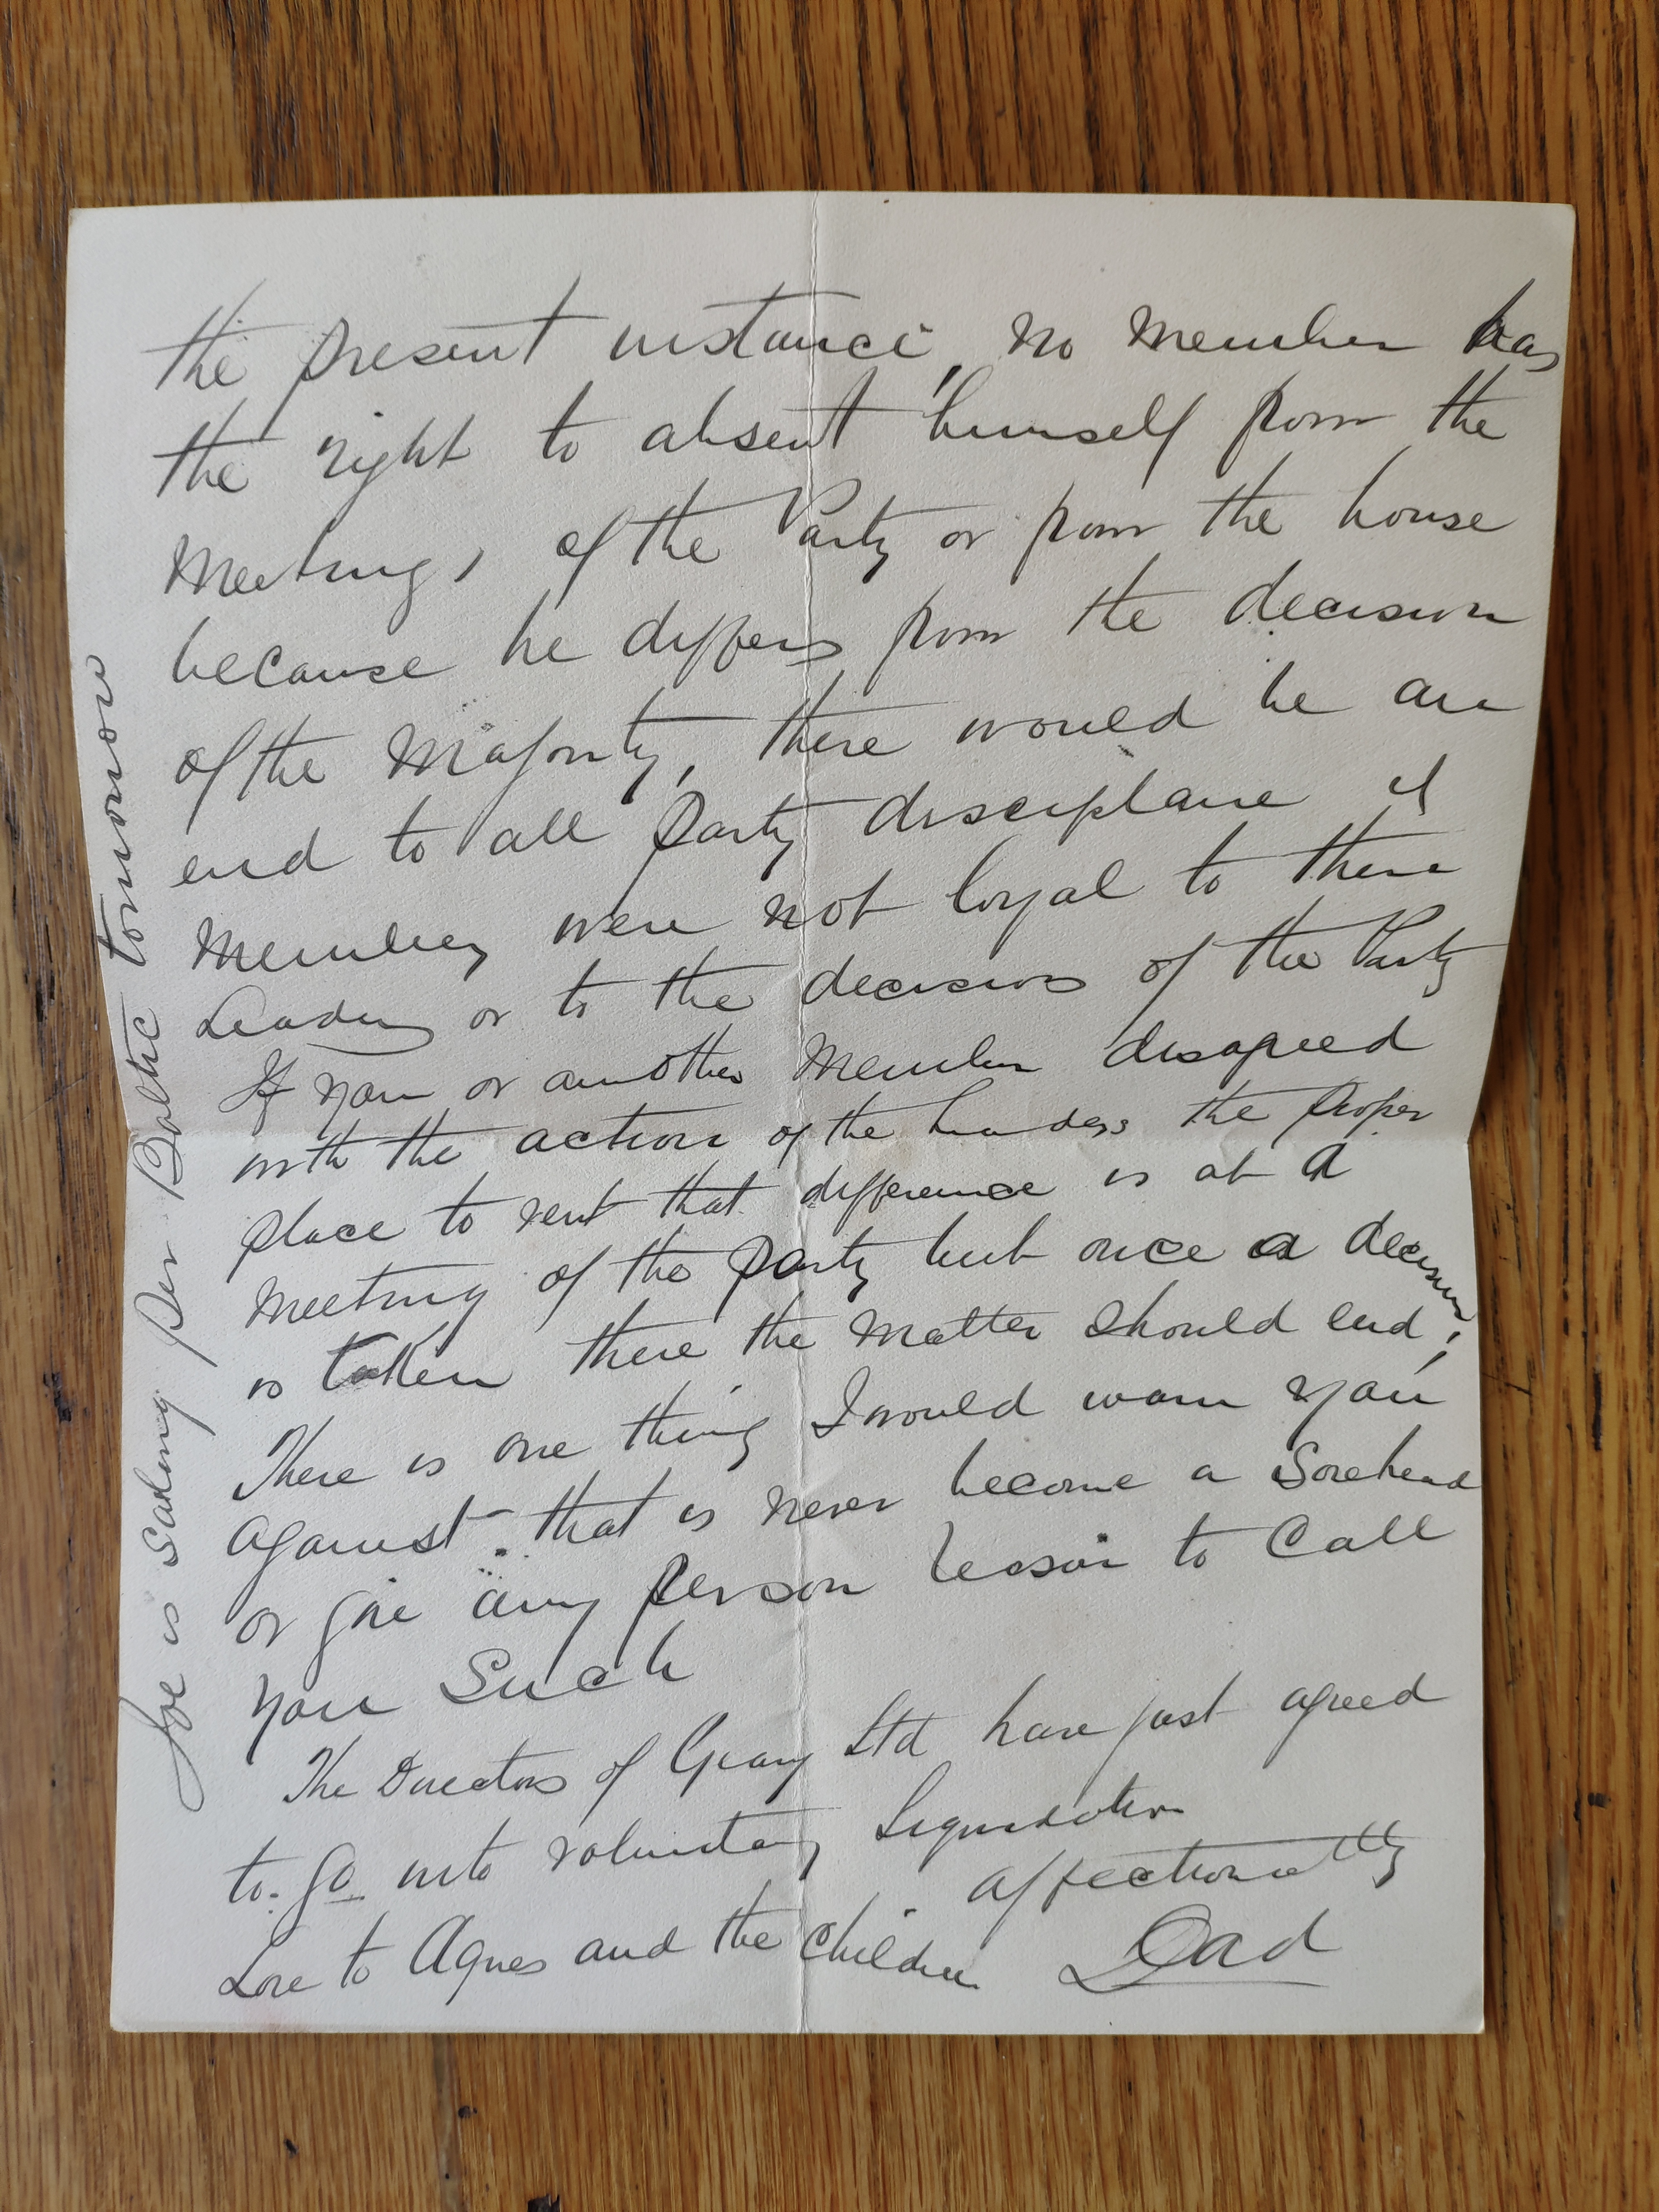 the present instance, no member has
the right to absent himself from the
Meetings of the Party or from the house
because he differs from the decision
of the Majority, there would be an
end to all Party disciplane if
Members were not loyal to there
Leaders or to the decisions of the Party
If you or another Member disagreed
with the action of the leaders the proper
place to vent that difference is at a
Meeting of the party but once a decision
is taken there the matter should end;
There is one thing I would warn you
against - that is never become a Sorehead
or give any person reason to Call
you Such
The Directors of Geary Ltd have just agreed
to go into voluntary Liquidation
affectionately
Love to Agnes and the Children Dad
Joe is sailing per Baltic tomorrow